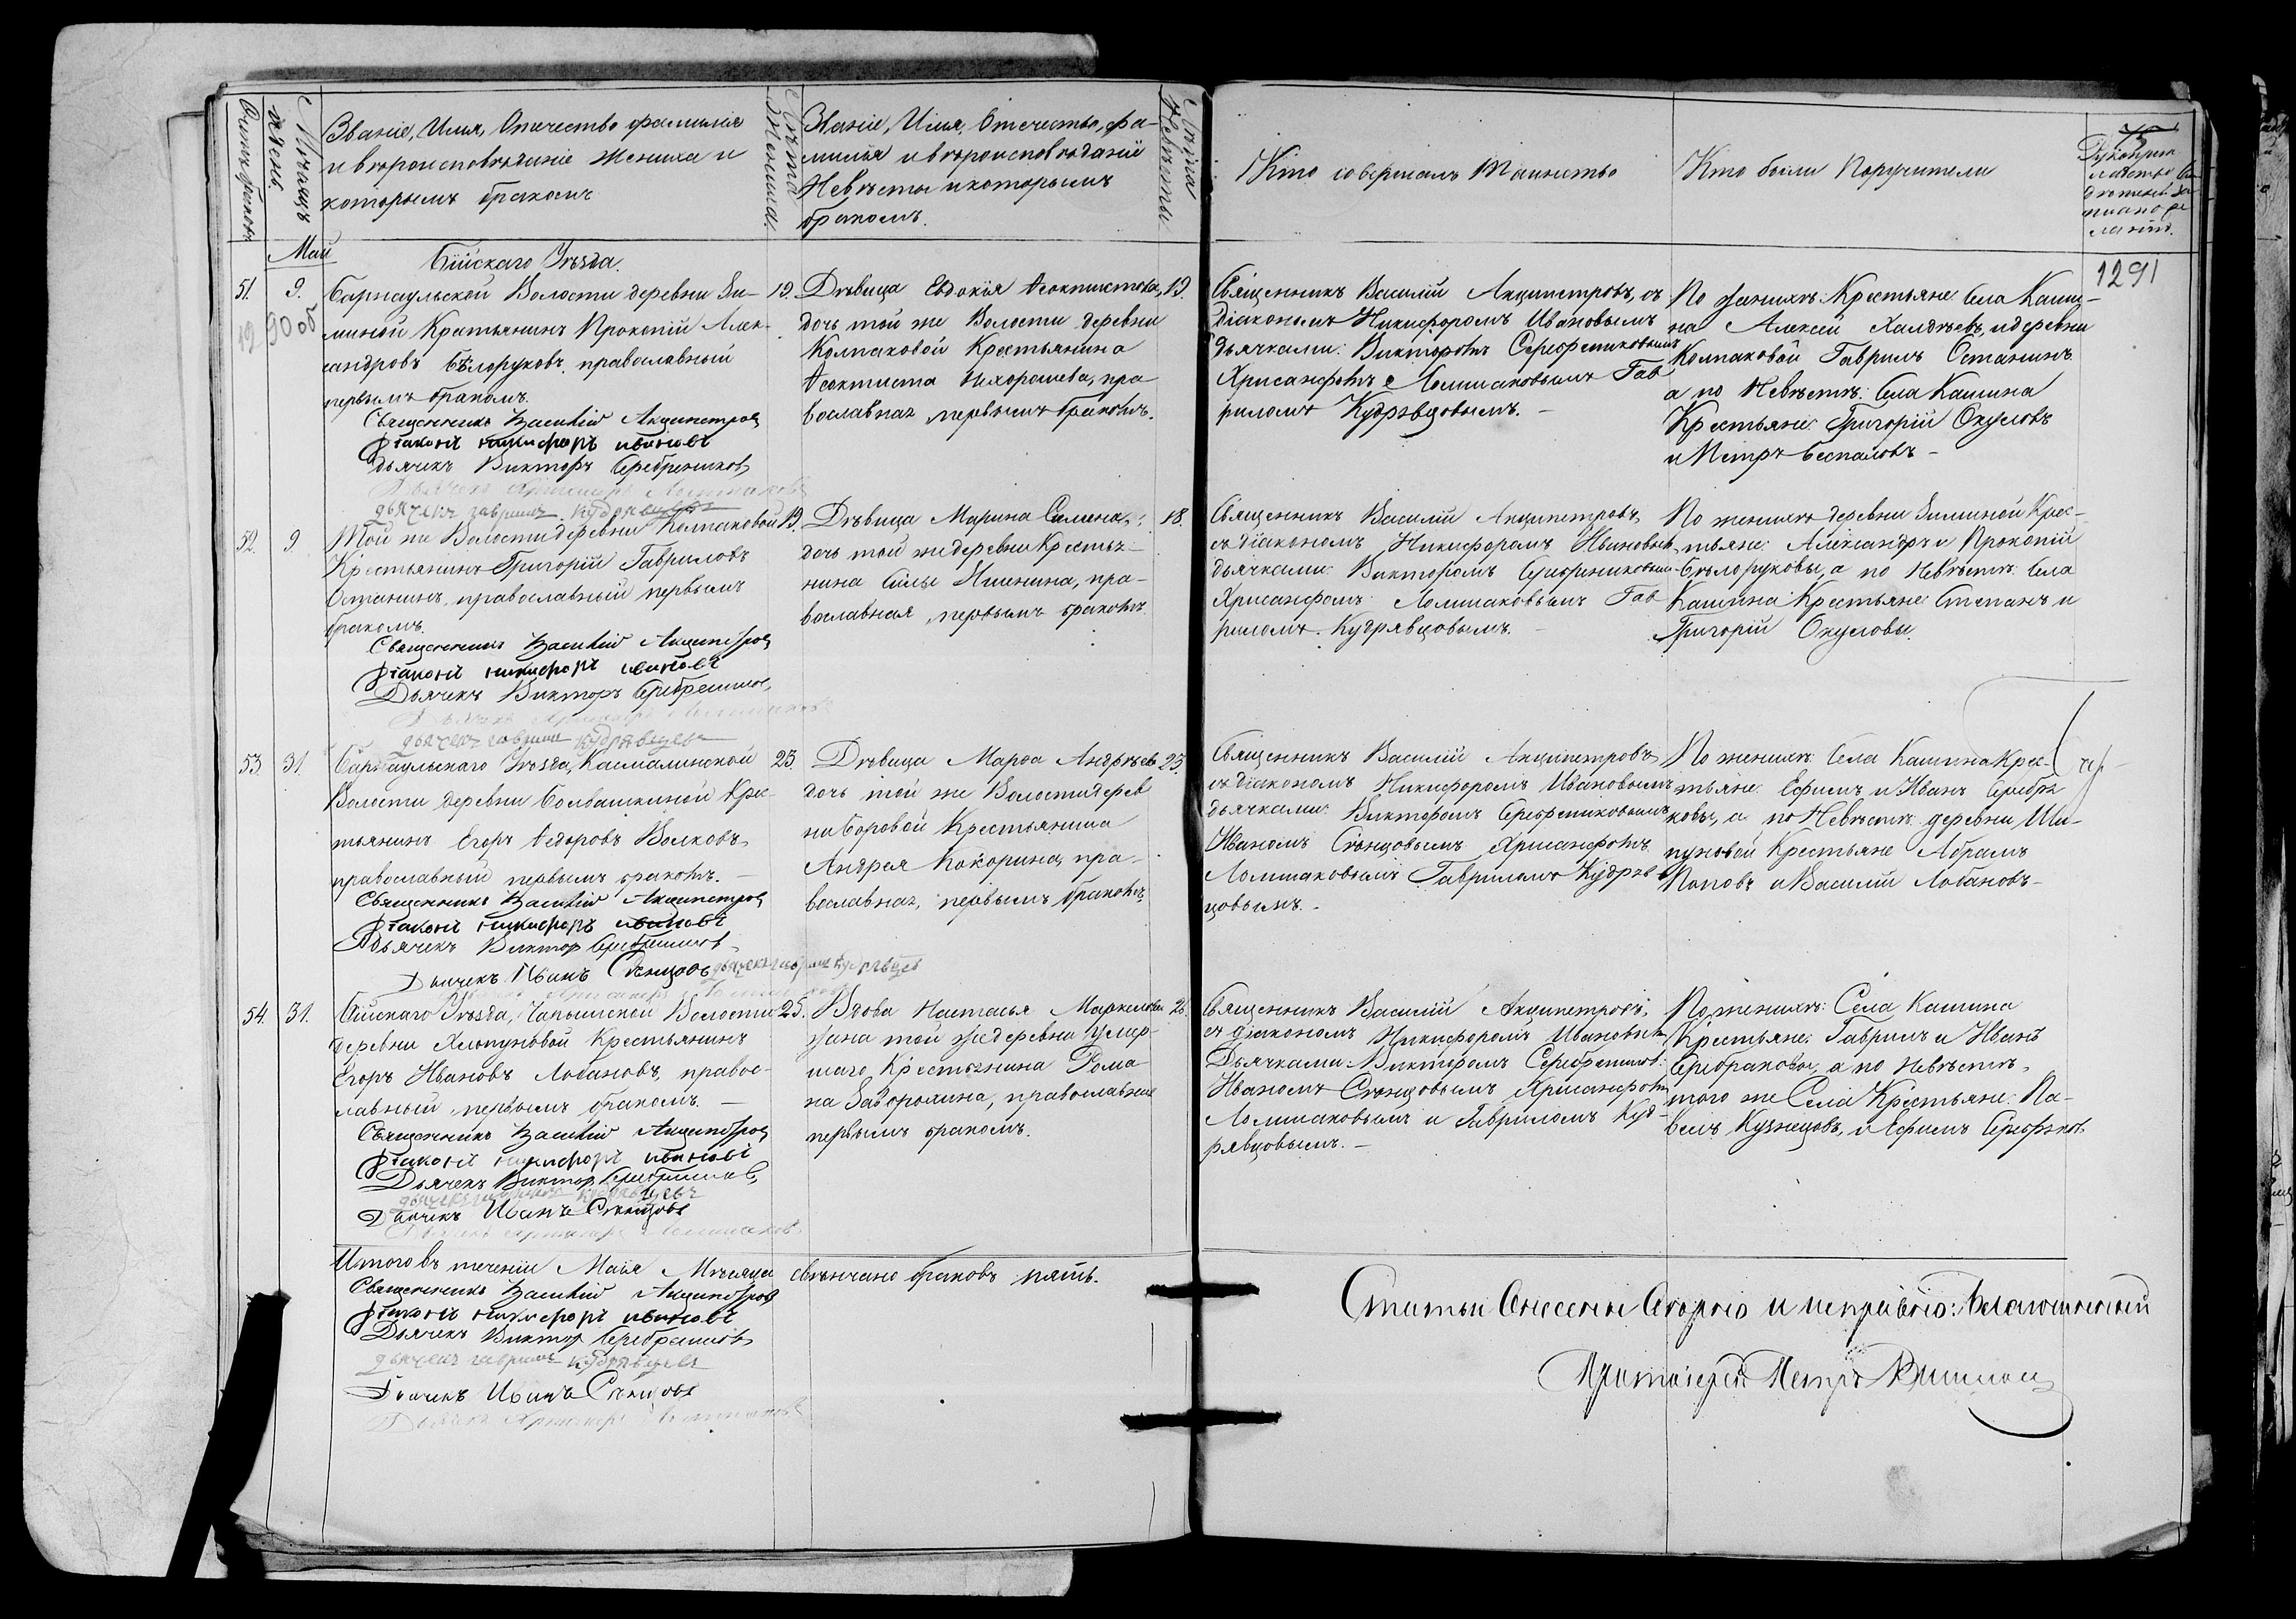 Счетъ браковъ
Мѣсяцъ и день
Званіе, Имя, Отечество фамилія
и вѣроисповѣданіе Жениха и
которымъ бракомъ
Лѣта Жениха.
Званіе, Имя, Отечество, фа-
милія и вѣроисповѣданіе
Невѣсты и которымъ
бракомъ.
Лѣта Невѣсты
Кто совершалъ Таинство
Кто были Поручители
Май
Бійскаго Уѣзда.
1291
51. 9.
90 об
Барнаульской Волости деревни Зи-
миной Крестьянинъ Прокопій Алек-
сандровъ Бѣлоруковъ, православный
первымъ бракомъ.
Священникъ Василій Акципетровъ
Діаконъ никифоръ ивановъ
дьячекъ Викторъ Серебрениковъ
дьячекъ гаврилъ кудрявцевъ
19.
Дѣвица Евдокія Ѳеоктистова,
дочь той же Волости деревни
Колпаковой Крестьянина
Ѳеоктиста Нехорошева, пра-
вославная, первымъ бракомъ.
19.
Священникъ Василій Акципетровъ, съ
діакономъ Никифоромъ Ивановымъ
дьячками: Викторомъ Серебрениковымъ
Хрисанфомъ Ломшаковымъ Гав
риломъ Кудрявцовымъ. -
По женихѣ: Крестьяне Села Каши-
на Алексѣй Халдѣевъ, и деревни
Колпаковой Гаврилъ Останинъ
а по Невѣстѣ: Села Кашина
Крестьяне: Григорій Окуловъ
и Петръ Беспаловъ -
52. 9.
Той же Волости деревни Колпаковой
Крестьянинъ Григорій Гавриловъ
Останинъ, православный первымъ
бракомъ.
Священникъ Василій Акципетровъ
Діаконъ никифоръ ивановъ
Дьячекъ Викторъ Серебрениковъ
дьячекъ гаврилъ кудрявцевъ
19.
Дѣвица Марина Силина,
дочь той же деревни Крестья-
нина Силы Яшнина, пра-
вославная, первымъ бракомъ.
18.
Священникъ Василій Акципетровъ,
съ діакономъ Никифоромъ Ивановым
дьячками: Викторомъ Серебрениковым
Хрисанфомъ Ломшаковымъ Гав
риломъ Кудрявцовымъ. -
По женихѣ деревни Зиминой Крес-
тьяне: Александръ и Прокопій
Бѣлоруковы, а по Невѣстѣ: Села
Кашина Крестьяне Степанъ и
Григорій Окуловы.
53. 31.
Барнаульскаго Уѣзда, Касмалинской
Волости деревни Болвашкиной Крес-
тьянинъ Егоръ Ѳедоровъ Волковъ,
православный первымъ бракомъ. -
Священникъ Василій Акципетровъ
Діаконъ никифоръ ивановъ
дьячекъ Викторъ Серебрениковъ
Дьячекъ Иванъ Сѣнцовъ дьячекъ гаврилъ кудрявцев
23.
Дѣвица Марѳа Андрѣева
дочь той же Волости дерев
ни Боровой Крестьянина
Андрея Кокорина, пра-
вославная, первымъ бракомъ,
23.
Священникъ Василій Акципетровъ
съ діакономъ Никифоромъ Ивановымъ
дьячками: Викторомъ Серебрениковымъ
Иваномъ Сѣнцовымъ Хрисанфомъ
Ломшаковымъ Гавриломъ Кудряв
цовымъ. -
По женихѣ: Села Кашина Крес-
тьяне: Ефимъ и Иванъ Серебря
ковы, а по Невѣстѣ: деревни Ши-
пуновой Крестьяне Абрамъ
Поповъ и Василій Лобановъ -
54. 31.
Бійскаго Уѣзда, Чарышской Волости
деревни Хлопуновой Крестьянинъ
Егоръ Ивановъ Лобановъ, правос-
лавный, первымъ бракомъ. -
Священникъ Василій Акципетровъ
Діаконъ никифоръ ивановъ
Дьячекъ Викторъ Серебрениковъ
дьячекъ гаврилъ кудрявцевъ
Дьячекъ Иванъ Сѣнцовъ
25.
Вдова Настасья Маркелова
жена той же деревни Умер-
шаго Крестьянина Рома
на Заворохина, православная
первымъ бракомъ.
Священникъ Василій Акципетровъ,
съ діакономъ Никифоромъ Ивановым
Дьячками: Викторомъ Серебреников.
Иваномъ Сѣнцовымъ Хрисанфомъ
Ломшаковымъ и Гавриломъ Куд-
рявцовымъ. -
По женихѣ: Села Кашина
Крестьяне: Гаврилъ и Иванъ
Серебряковы, а по невѣстѣ,
того же Села Крестьяне: Па-
велъ Кузнецовъ, и Ефимъ Серебряков
Итого въ теченіи Маія Мѣсяца свѣнчано браковъ пять.
Священникъ Василій Акципетровъ
Діаконъ никифоръ ивановъ
Дьячекъ Викторъ Серебрениковъ
дьячекъ гаврилъ кудрявцевъ
Дьячекъ Иванъ Сѣнцовъ
Протоіерей Петръ